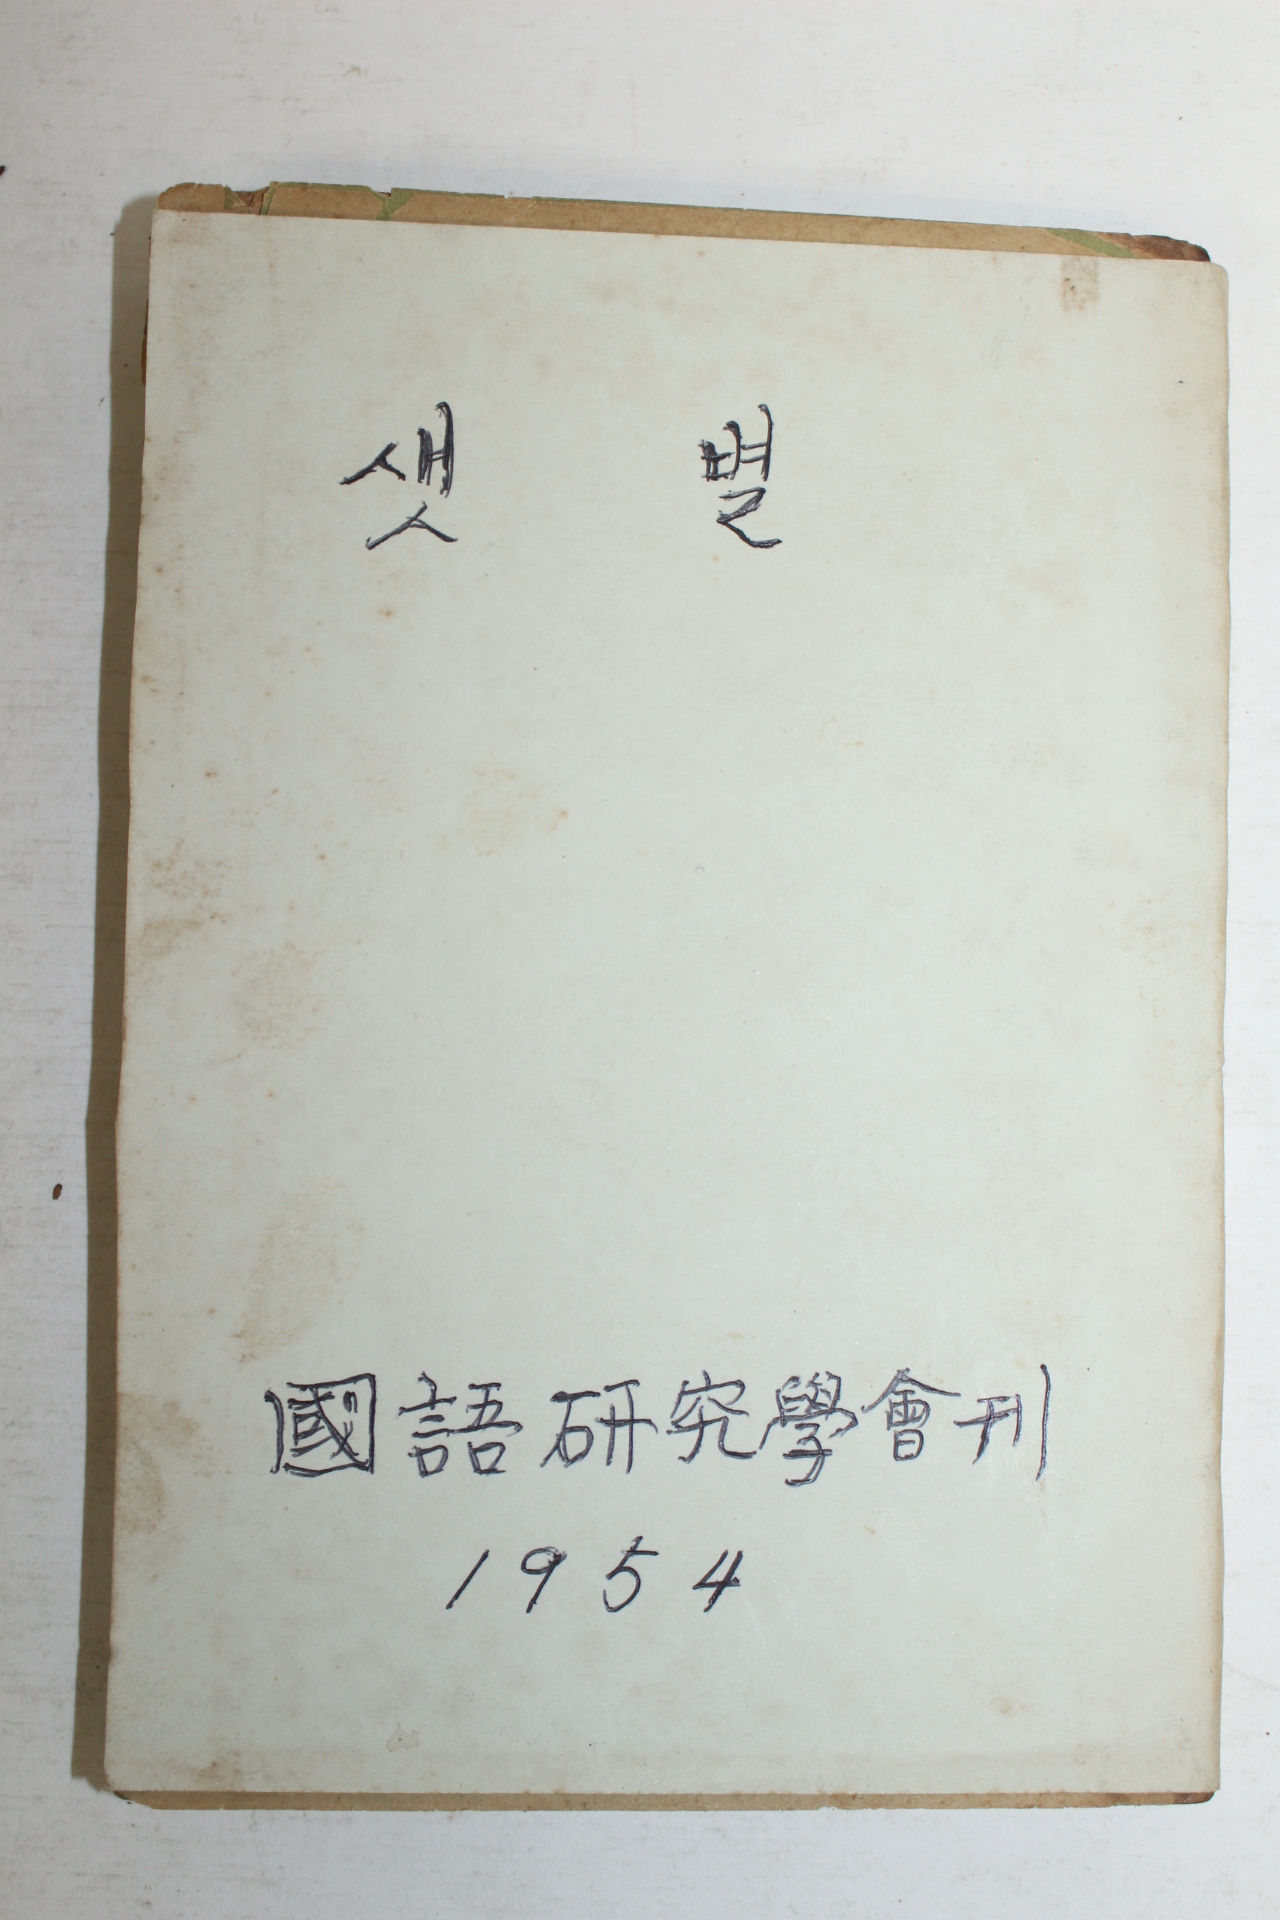 샛 별
國語研究學會刊
1954